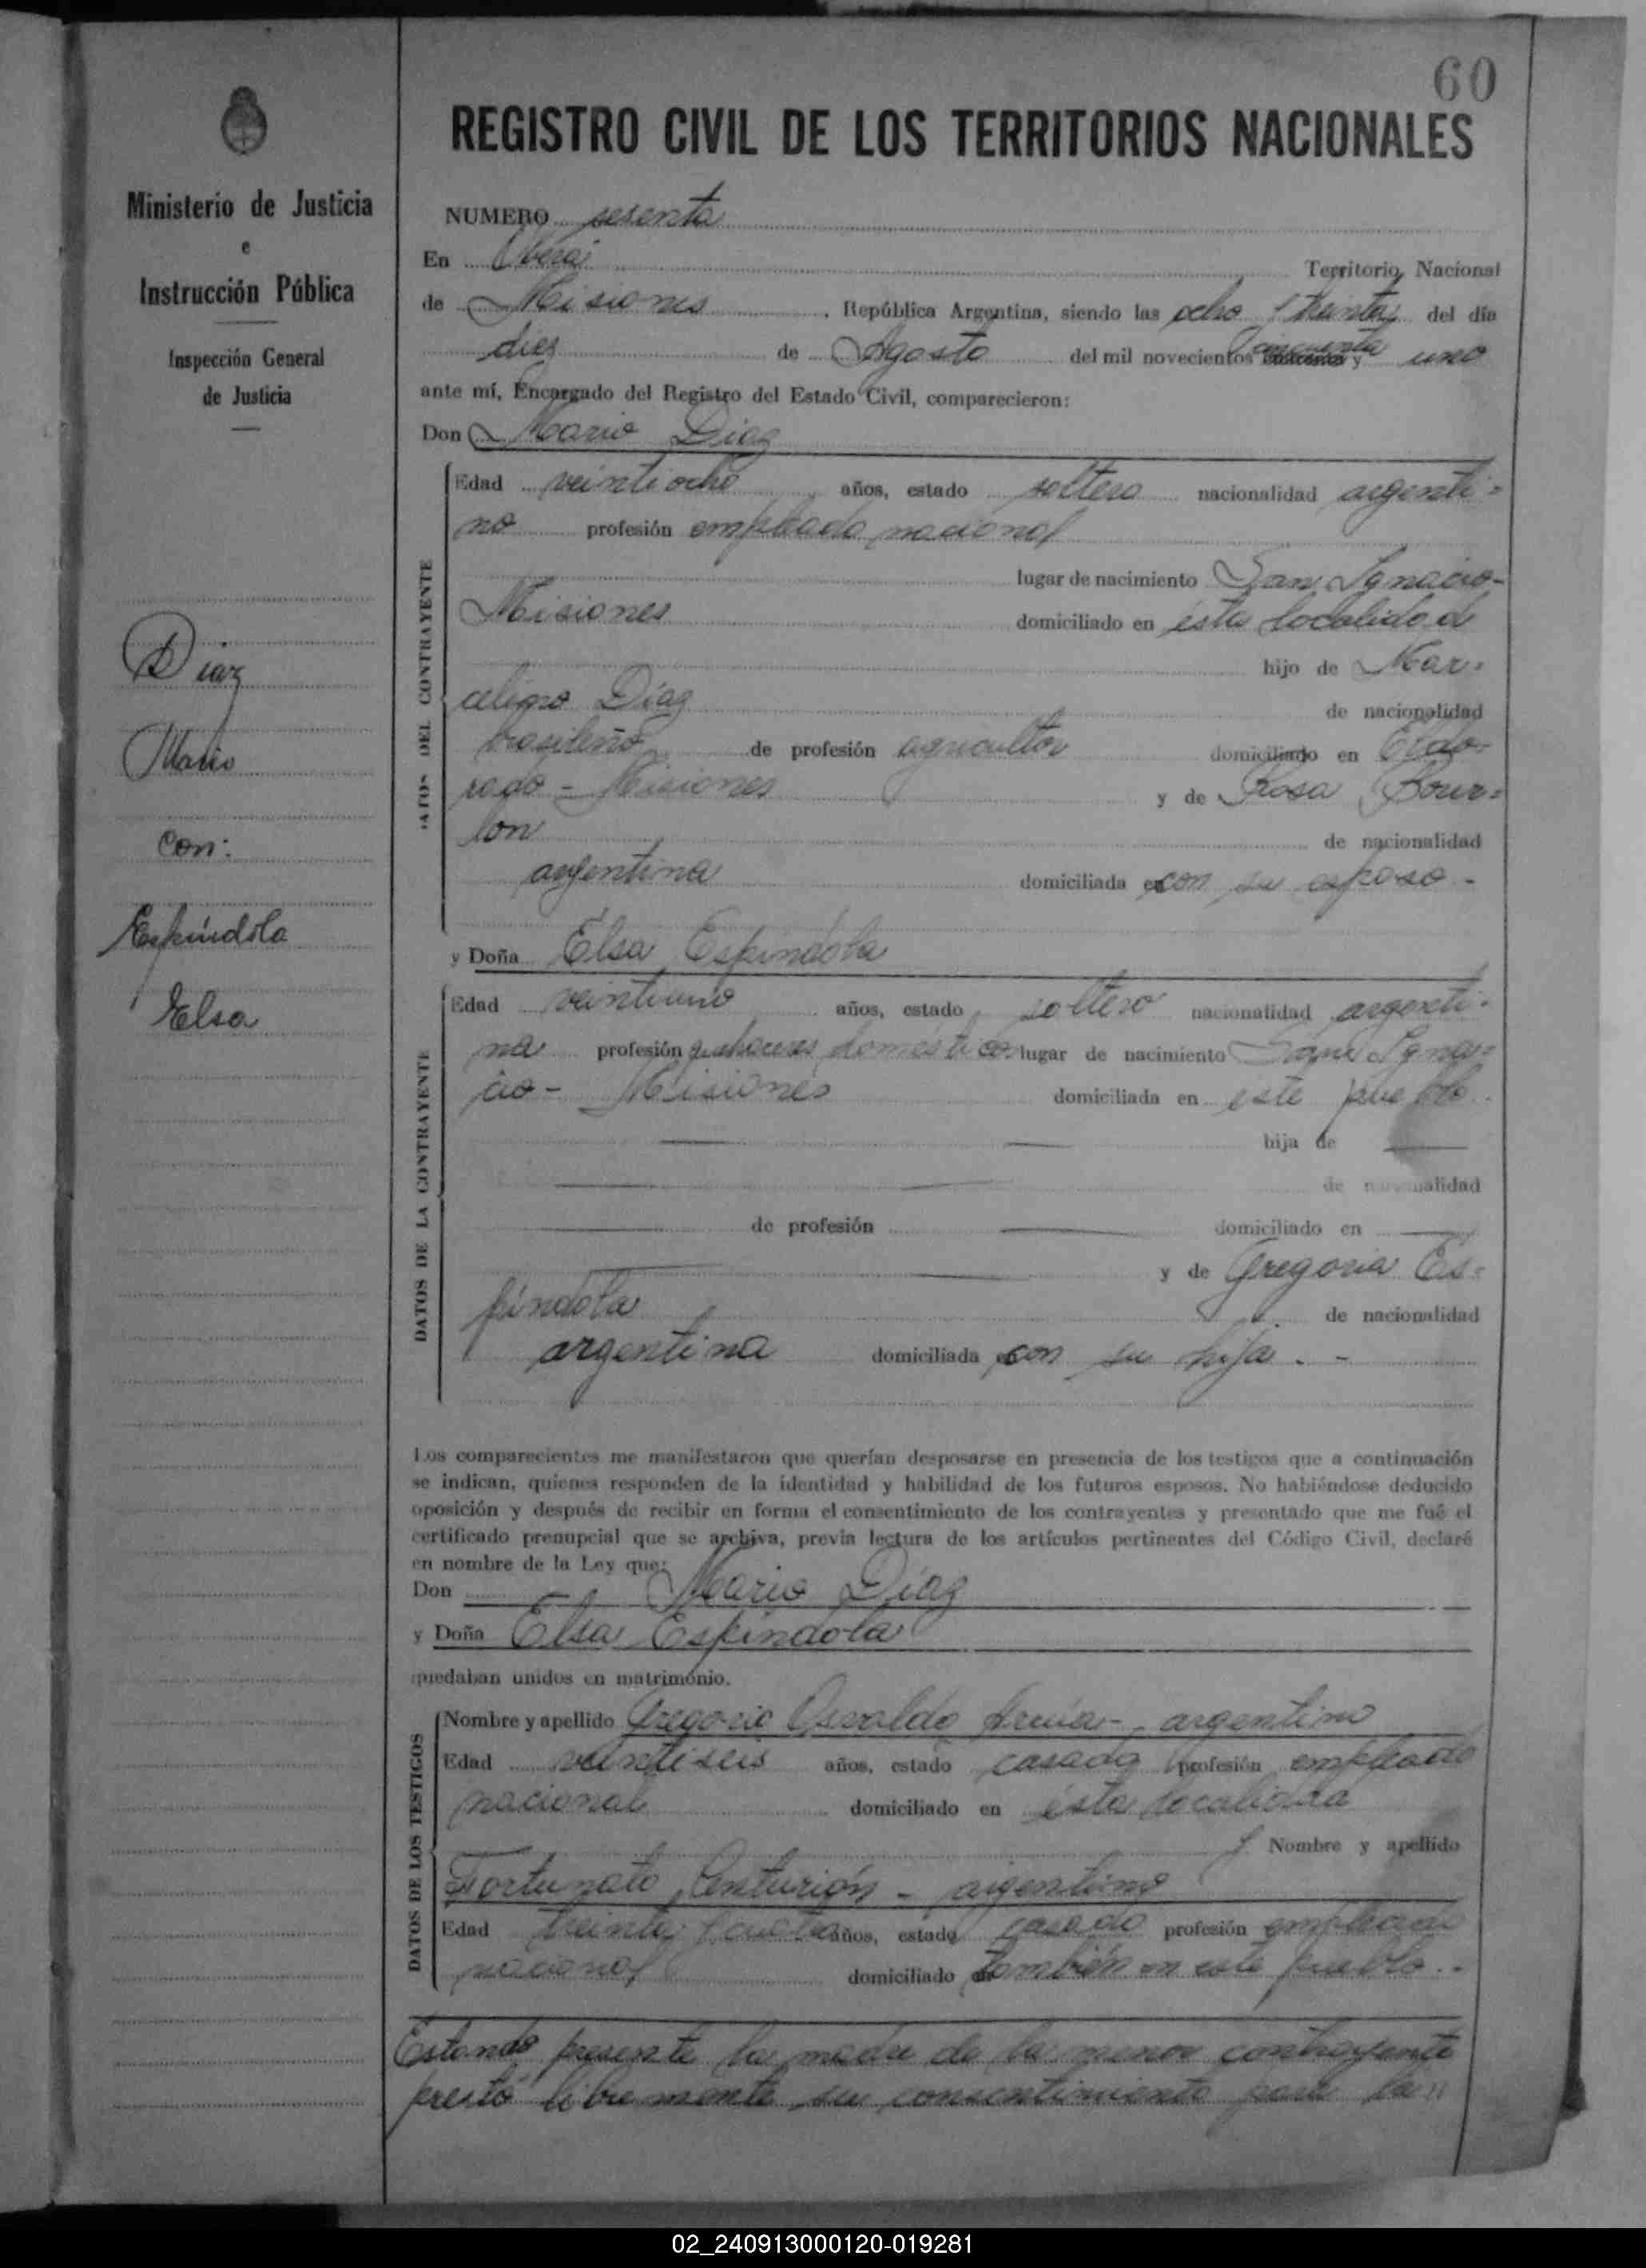 60
REGISTRO CIVIL DE LOS TERRITORIOS NACIONALES
Ministerio de Justicia
e
Instrucción Pública
Inspección General
de Justicia
Diaz
Mario
Con:
Espíndola
Elsa
NUMERO sesenta
En Oberá Territorio Nacional
de Misiones, República Argentina, siendo las ocho y treinta del día
diez de Agosto del mil novecientos cincuenta y uno
ante mí, Encargado del Registro del Estado Civil, comparecieron:
Don Mario Díaz
DATOS DEL CONTRAYENTE
Edad veintiocho años, estado soltero nacionalidad argenti=
no profesión empleado nacional
lugar de nacimiento San Ignacio-
Misiones domiciliado en ésta localidad
hijo de Mar=
celino Díaz de nacionalidad
brasileño de profesión agricultor domiciliado en Eldo-
rado - Misiones y de Rosa Bour=
lon de nacionalidad
argentina domiciliada en con su esposo -
y Doña Elsa Espíndola
DATOS DE LA CONTRAYENTE
Edad veintiuno años, estado soltero nacionalidad argenti-
na profesión quehaceres domésticos lugar de nacimiento San Igna=
cio - Misiones domiciliada en este pueblo
hija de
de nacionalidad
de profesión domiciliado en
y de Gregoria Es=
píndola de nacionalidad
argentina domiciliada en con su hija. -
Los comparecientes me manifestaron que querían desposarse en presencia de los testigos que a continuación
se indican, quienes responden de la identidad y habilidad de los futuros esposos. No habiéndose deducido
oposición y después de recibir en forma el consentimiento de los contrayentes y presentado que me fué el
certificado prenupcial que se archiva, previa lectura de los artículos pertinentes del Código Civil, declaré
en nombre de la Ley que:
Don Mario Díaz
y Doña Elsa Espíndola
quedaban unidos en matrimonio.
DATOS DE LOS TESTIGOS
Nombre y apellido Gregorio Osvaldo - argentino
Edad veintiseis años, estado casado profesión empleado
nacional domiciliado en ésta localidad
y Nombre y apellido
Fortunato Centurión - argentino
Edad treinta y cuatro años, estado casado profesión empleado
nacional domiciliado en también en este pueblo. -
Estando presente la madre de la menor contrayente
prestó libremente su consentimiento para la
02_240913000120-019281